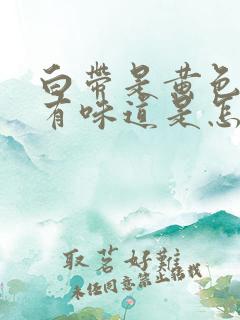 白带是黄色
有味道是怎
取茗好难
未经同意禁止转载